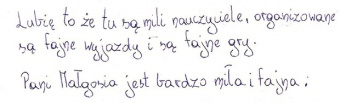 Lubię to że tu są mili nauczyciele, organizowane
są fajne wyjazdy i są fajne gry.
Pani Małgosia jest bardzo miła i fajna.